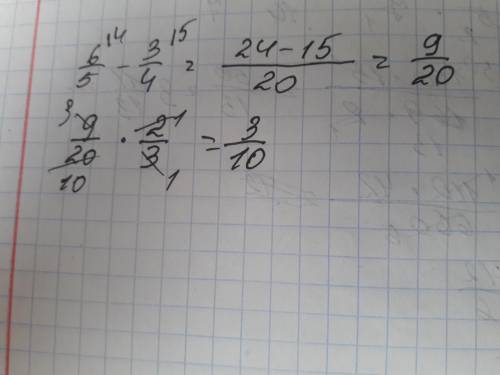 6/5 ^14 - 3/4 ^15 = 24-15/20 = 9/20
3 9/20 10 · 2/3 1 1 = 3/10